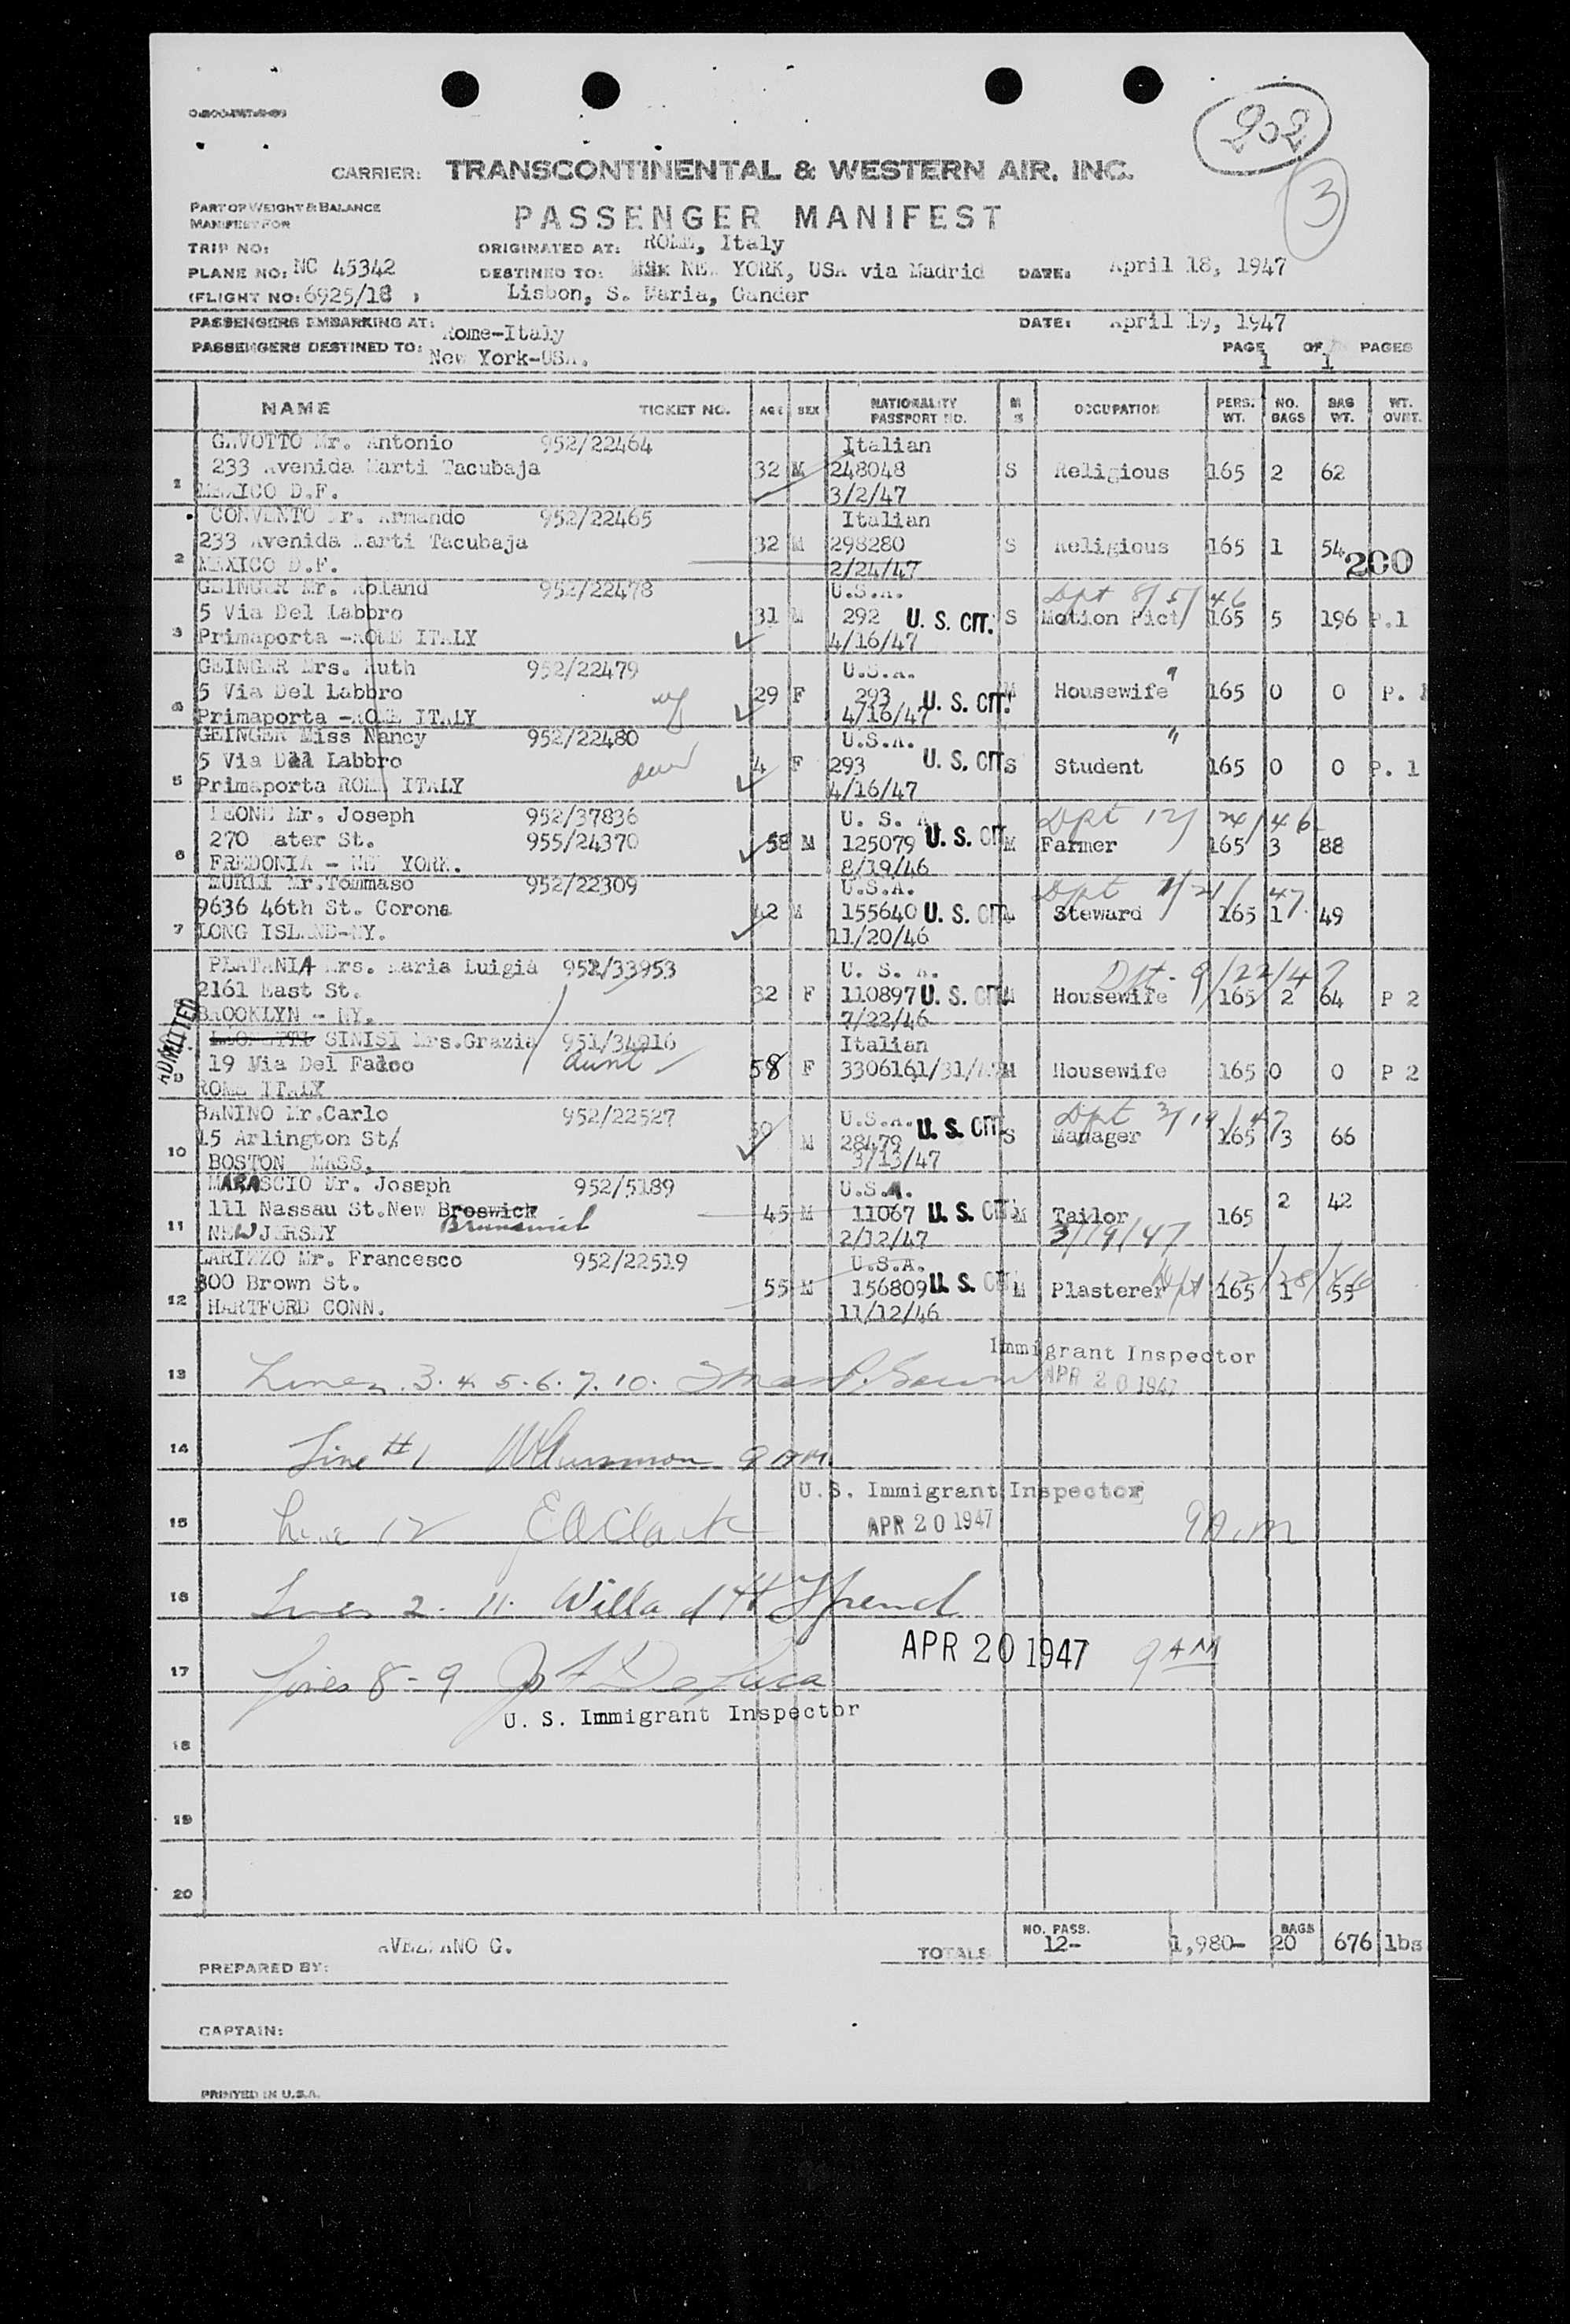 202
3
CARRIER: TRANSCONTINENTAL & WESTERN AIR, INC.
PART OF WEIGHT & BALANCE
MANIFEST FOR
PASSENGER MANIFEST
TRIP NO:
ORIGINATED AT: ROME, Italy
PLANE NO: NC 45342
DESTINED TO: NEW YORK, USA via Madrid
DATE: April 18, 1947
(FLIGHT NO: 6925/18 )
Lisbon, S. Maria, Gander
PASSENGERS EMBARKING AT: Rome-Italy
DATE: April 19, 1947
PASSENGERS DESTINED TO: New York-USA.
PAGE 1 OF 1 PAGES
NAME TICKET NO. AGE SEX NATIONALITY PASSPORT NO. M S OCCUPATION PERS. WT. NO. BAGS BAG WT. WT. OVWT.
GAVOTTO Mr. Antonio 952/22464 Italian
233 Avenida Marti Tacubaja 32 M 248048 S Religious 165 2 62
1 MEXICO D.F. 3/2/47
CONVENTO Mr. Armando 952/22465 Italian
233 Avenida Marti Tacubaja 32 M 298280 S Religious 165 1 54
2 MEXICO D.F. 2/24/47 200
GEINGER Mr. Roland 952/22478 U.S.A. Dpt 8/5/46
5 Via Del Labbro 31 M 292 U. S. CIT. S Motion Pict/ 165 5 196 P.1
3 Primaporta -ROME ITALY 4/16/47
GEINGER Mrs. Ruth 952/22479 U.S.A. "
5 Via Del Labbro wf 29 F 293 U. S. CIT. M Housewife 165 0 0 P. 1
4 Primaporta -ROME ITALY 4/16/47
GEINGER Miss Nancy 952/22480 U.S.A. "
5 Via Del Labbro 4 F 293 U. S. CIT S Student 165 0 0 P. 1
5 Primaporta ROME ITALY 4/16/47
LEONE Mr. Joseph 952/37836 U. S. A. Dpt 12/24/46
270 ater St. 955/24370 58 M 125079 U. S. CIT M Farmer 165 3 88
6 FREDONIA - NEW YORK. 8/19/46
Mr.Tommaso 952/22309 U.S.A. Dpt 1/21/47
9636 46th St. Corona 42 M 155640 U. S. CIT Steward 165 1 49
7 LONG ISLAND-NY. 11/20/46
PLATANIA Mrs. Maria Luigia 952/33953 U. S. A. Dpt - 9/22/47
2161 East St. 32 F 110897 U. S. CIT M Housewife 165 2 64 P 2
BROOKLYN - NY. 7/22/46
ADMITTED
SINISI Mrs.Grazia 951/34916 Italian
19 Via Del Falco aunt 58 F 330616 1/31/ M Housewife 165 0 0 P 2
9 ROME ITALY
BANINO Mr.Carlo 952/22527 U.S.A. U. S. CIT Dpt 3/19/47
15 Arlington St. M 28479 S Manager 165 3 66
10 BOSTON MASS. 3/13/47
MARASCIO Mr. Joseph 952/5189 U.S.A.
111 Nassau St.New Broswick 45 M 11067 U. S. CIT M Tailor 165 2 42
11 NEW JERSEY Brunswick 2/12/47 3/19/47
LARIZZO Mr. Francesco 952/22519 U.S.A.
300 Brown St. 55 M 156809 U. S. CIT M Plasterer Dpt 12/28/46 165 1 55
12 HARTFORD CONN. 11/12/46
Immigrant Inspector
13 Lines 3. 4. 5. 6. 7. 10. APR 20 1947
14 Line # 1 9 AM.
U.S. Immigrant Inspector
15 Line 12 E A Clark APR 20 1947 9 A.M
16 Lines 2. 11. Willard H French
APR 20 1947 9 AM
17 Lines 8 - 9 De Luca
U. S. Immigrant Inspector
18
19
20
AVEZZANO G.
PREPARED BY:
TOTALS NO. PASS. 12- 1,980- BAGS 20 676 lbs
CAPTAIN:
PRINTED IN U.S.A.